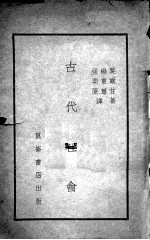 莫爾甘著
楊東蓴
張栗原譯
古代社會
崑崙書店出版